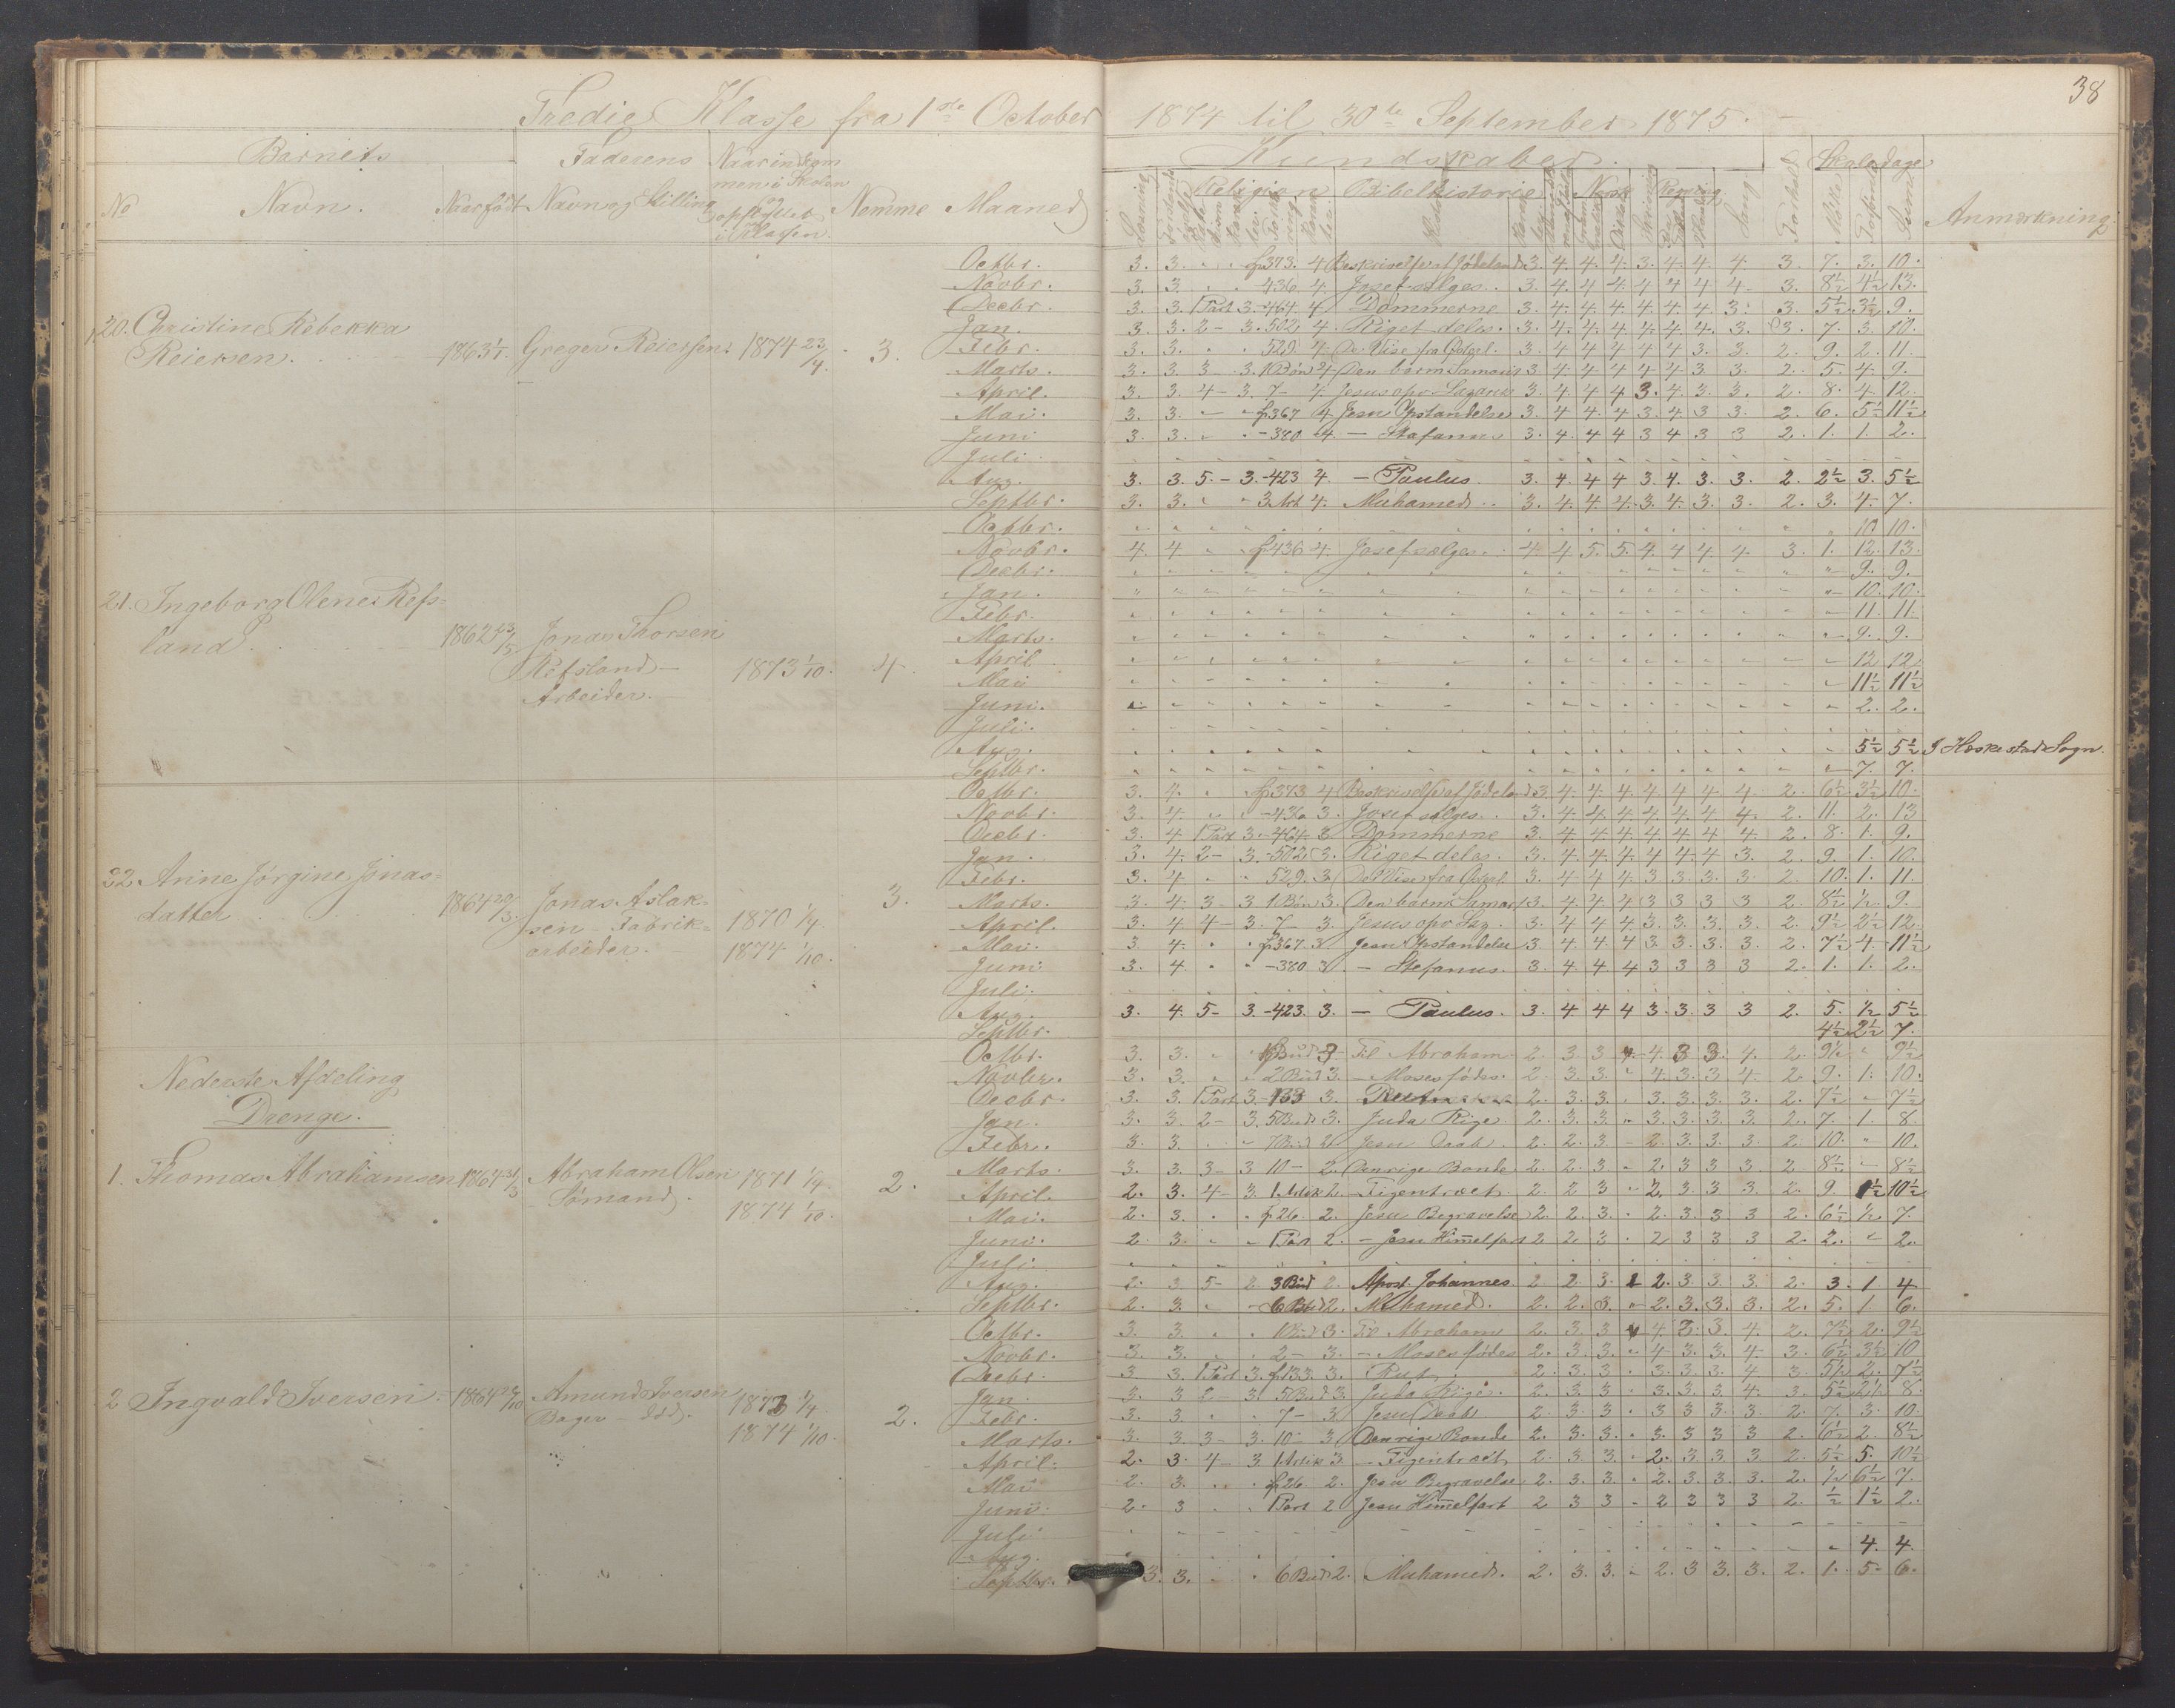 38
Tredie Klasse fra 1ste October 1874 til 30te September 1875.
Barnets
Faderens
Kundskaber.
Skoledage
No
Navn.
Naar født
Navn og Stilling
Nemme
Maaned
Religion
Bibelhistorie
Norsk
Regning
Sang
Anmærkning
20. Christine Rebekka
Reiersen.
1863 1/1.
Greger Reiersen.
1874 23/4.
3.
Octbr. 3. 3. " " f373. 4 Beskrivelse af Jødeland 3. 4. 4. 4. 3. 4. 4. 4. 3. 7. 3. 10.
Novbr. 3. 3. " " -436 4. Josef sælges. 3. 4. 4. 4. 4 4 4 4. 3. 8½ 4½ 13.
Decbr. 3. 3. 1 Part 3. -464 4 Dommerne 3. 4. 4. 4. 4. 4. 4. 3. 3. 5½ 3½ 9.
Jan. 3. 3. 2 - 3. 502 4. Riget deles. 3. 4. 4. 4. 4. 4. 4. 3. 3. 7. 3. 10.
Febr. 3. 3. " " 529. 4. De Vise fra 3. 4 4 4 4 4 3. 3. 2. 9. 2. 11.
Marts. 3. 3. 3 - 3. 1 Bøn 4 Den barm Samari 3. 4. 4 4 4 4 3 3. 2. 5. 4. 9.
April. 3. 3. 4 - 3. 7 - 4. Jesus opv Lazarus 3. 4. 4 4 3. 4. 3. 3. 2. 8. 4. 12.
Mai. 3. 3. " " f367 4 Jesu Opstandelse 3. 4 4. 4 3. 4. 3 3. 2. 6. 5½ 11½
Juni. 3. 3. " " -380 4. - Stefanus 3. 4. 4 4 3 4 3 3 2. 1. 1. 2.
Juli.
Aug. 3. 3. 5. - 3. -423 4. - Paulus. 3. 4. 4 4 3. 4. 3. 3. 2. 2½ 3. 5½
Septbr. 3. 3. " " 3 Art 4. Muhamed. 3. 4. 4. 4. 3. 4. 3. 3. 2. 3. 4. 7.
21. Ingeborg Olene Refs=
land.
1862 23/5
Jonas Thorsen
Refsland -
Arbeider.
1873 1/10.
4.
Octbr. 10. 10.
Novbr. 4. 4 " " f436 4. Josef sælges. 4. 4 5. 5. 4. 4 4. 4. 3. 1. 12. 13.
Decbr. 9. 9.
Jan. 10. 10.
Febr. 11. 11.
Marts. 9. 9.
April 12. 12.
Mai 11½ 11½
Juni. 2. 2.
Juli.
Aug. 5½ 5½ I Heskestad Sogn.
Septbr. 7. 7.
22. Anne Jørgine Jonas=
datter
1864 20/3.
Jonas Aslak=
sen - Fabrik=
arbeider.
1870 1/4.
1874 1/10.
3.
Octbr. 3. 4. " f373 4 Beskrivelse af Jødeland 3. 4. 4. 4. 4 4 4 4 2. 6½ 3½ 10.
Novbr. 3 4. " " -436 3. Josef sælges. 3. 4. 4. 4. 4. 4. 4 4. 2. 11. 2. 13
Decbr. 3. 4. 1 Part 3. -464. 3 Dommerne 3. 4 4 4 4 4 4 4. 2. 8. 1. 9.
Jan. 3. 4. 2 - 3. -502. 3. Riget deles. 3. 4. 4. 4. 4 4. 4 3. 2. 9. 1. 10.
Febr. 3. 4. " " 529. 3. De Vise fra 3. 4 4 4. 3 3. 3. 3. 2. 10. 1. 11.
Marts. 3. 4. 3 - 3 1 Bøn 3. Den barmh Samar 3. 4. 4 4 3 3 3 3 2. 8½ ½ 9.
April. 3. 4 4 - 3. 7 - 3. Jesus opv Laz. 3. 4 4 4. 3. 3. 3. 3. 2. 9½ 2½ 12.
Mai. 3 4. " " f367. 3. Jesu Opstandelse 3. 4 4. 4 3. 3. 3. 3. 2. 7½ 4. 11½
Juni. 3. 4. " " -380 3 - Stefanus. 3. 4. 4 4 3 3 3 3 2. 1. 1. 2.
Juli.
Aug. 3. 4. 5- 3. -423. 3. - Paulus. 3. 4 4 4 3. 3. 3 3 2. 5. ½ 5½
Septbr. 4½ 2½ 7.
Nederste Afdeling
Drenge.
1. Thomas Abrahamsen
1864 31/3
Abraham Olsen
Sømand.
1871 1/4.
1874 1/10.
2.
Octbr. 3. 3. Til Abraham 2. 3. 3 4. 3 3. 4. 2. 9½ " 9½
Novbr. 3. 3. " " 2 Bud 3. - Moses fødes. 2. 3. 3. " 4. 3. 3 4. 2. 9. 1. 10.
Decbr. 3. 3. 1 Part 3. 133 3. Rut 2. 3. 3. " 3. 3. 3. 3. 2. 7½ " 7½
Jan. 3. 3. 2 - 3. 5 Bud 3. Juda Rige 2. 3. 3 " 3. 3. 3. 3. 2. 7. 1. 8.
Febr. 3. 3. " " 7 Bud 2. Jesu Daab. 2. 2. 3 - 2. 3. 3. 3. 2. 10. " 10.
Marts. 3. 3. 3 - 3 10 - 2. Den rige Bonde 2. 2. 3. " 2. 3 3 3. 2 8½ - 8½
April. 2. 3. 4 - 3. 1 Artik 2. - Figentræet. 2. 2 3 " 2. 3. 3 3. 2. 9. 1½ 10½
Mai. 2. 3. " " f26. 2. Jesu Begravelse 2. 2. 3. " 2. 3. 3 3 2. 6½ ½ 7.
Juni. 2. 3. " " 1 Part 2. - Jesu Himmelfart 2 2 3 " 2 3 3 3 2. 2. " 2.
Juli
Aug. 2. 3 5 - 2 3 Bud 2. Apost. Johannes. 2 2 3. 2. 3 3 3. 2. 3. 1. 4
Septbr. 2. 3. " - 6 Bud 2. Muhamed. 2. 2. 3. " 2. 3. 3. 3. 2. 5. 1. 6.
2 Ingvald Iversen.
1864 23/10
Amund Iversen
Bager - Idd.
1873 1/4.
1874 1/10.
2.
Octbr. 3. 3. " " 1 Bud 3. Til Abraham 2. 3. 3 4. 2. 3. 4. 2. 7½ 2. 9½
Novbr. 3. 3. " " 2 - 3. - Moses fødes 2. 3. 3. " 4 3. 3 4. 3. 6½ 3½ 10
Decbr. 3 3. 1 Part 3. f133 3. Rut. 2. 3. 3. " 3. 3. 3. 4 3. 5½ 2. 7½
Jan. 3. 3 2 - 3. 5 Bud 3. Juda Rige. 2. 3. 3 " 3. 3. 3. 4. 3. 5½ 2½ 8.
Febr. 3. 3. " " 7 - 3 Jesu Daab. 2. 3. 3 " 3 3 3. 3. 2. 7. 3. 10.
Marts. 3. 3. 3 - 3. 10 3 Den rige Bonde 2. 3. 3. " 3. 3 3 3 2. 6½ 2. 8½
April. 2. 3. 4 - 3 1 Artik 3. - Figentræet 2. 3. 3. " 2. 3. 3 3 2. 5½ 5. 10½
Mai 2. 3. " " f26. 2. Jesu Begravelse 2. 3. 3. " 2. 3. 3. 3. 2. ½ 6½ 7.
Juni. 2. 3 " " 1 Part 2 Jesu Himmelfart 2 3 3 - 2 3 3 3 2. ½ 1½ 2.
Juli
Aug. 4. 4.
Septbr. 3. 3. " " 6 Bud 2. Muhamed. 2. 3. 3. " 2. 3 3. 3. 2. 1. 5. 6.